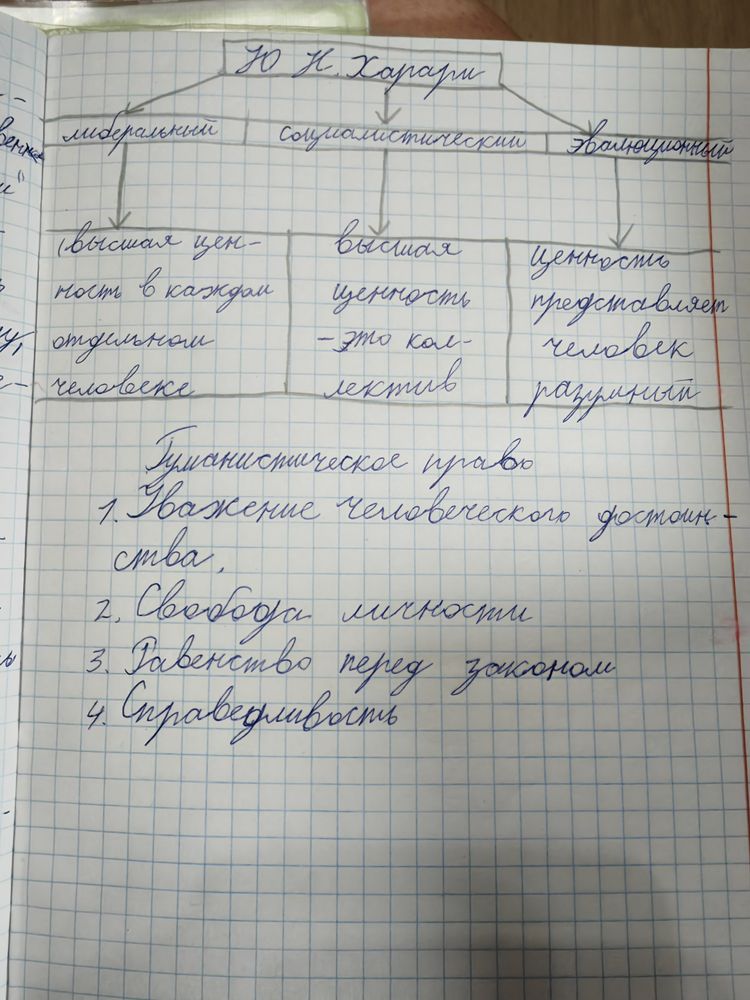 Ю Н. Харари
либеральный социалистический эвалюционный
высшая цен- высшая ценность
ность в каждом ценность представляет
отдельном - это кол- человек
человеке лектив разумный
Гуманистическое право
1. Уважение человеческого достоин-
ства.
2. Свобода личности
3. Равенство перед законом
4. Справедливость